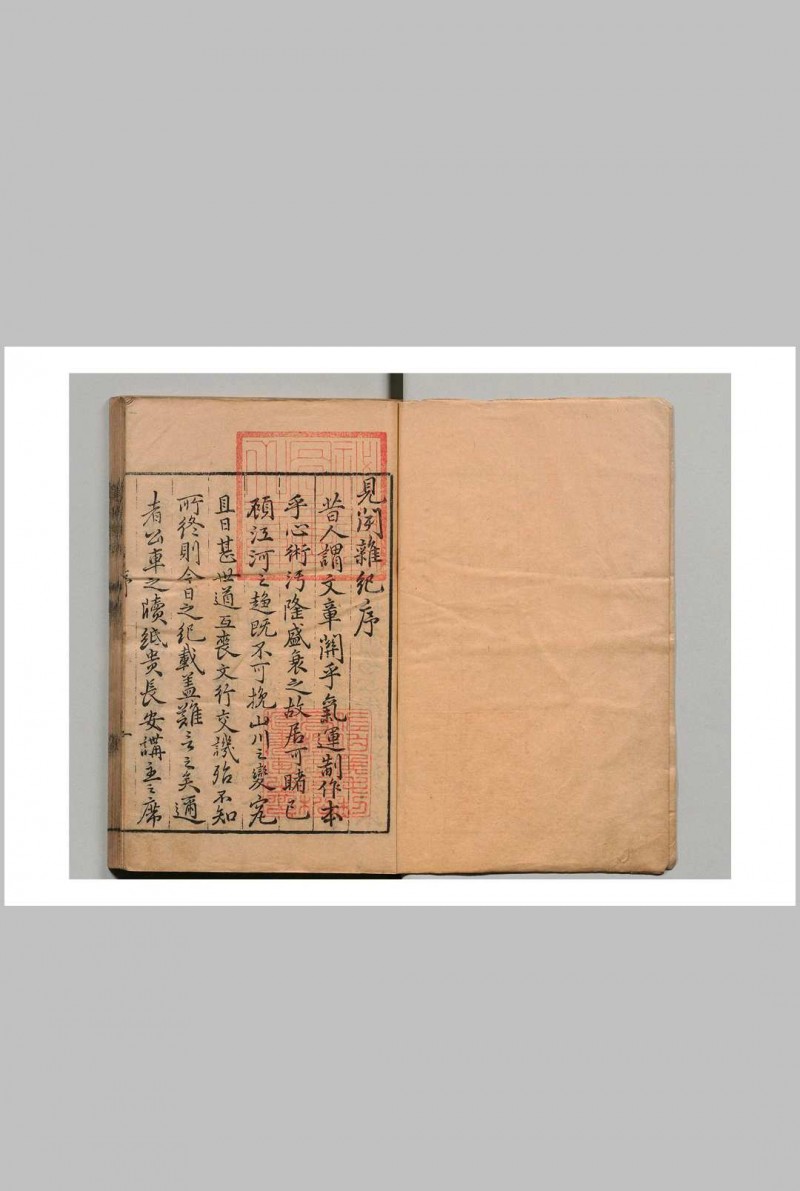 見聞雜紀序
昔人謂文章關乎氣運制作本
乎心術汚隆盛衰之故居可睹已
顧江河之趋既不可挽山川之變寃
且日甚世道互喪文行交譏殆不知
所終則今日之紀載盖難言之矣邇
者公車之牘紙贵長安講主之席
序
一